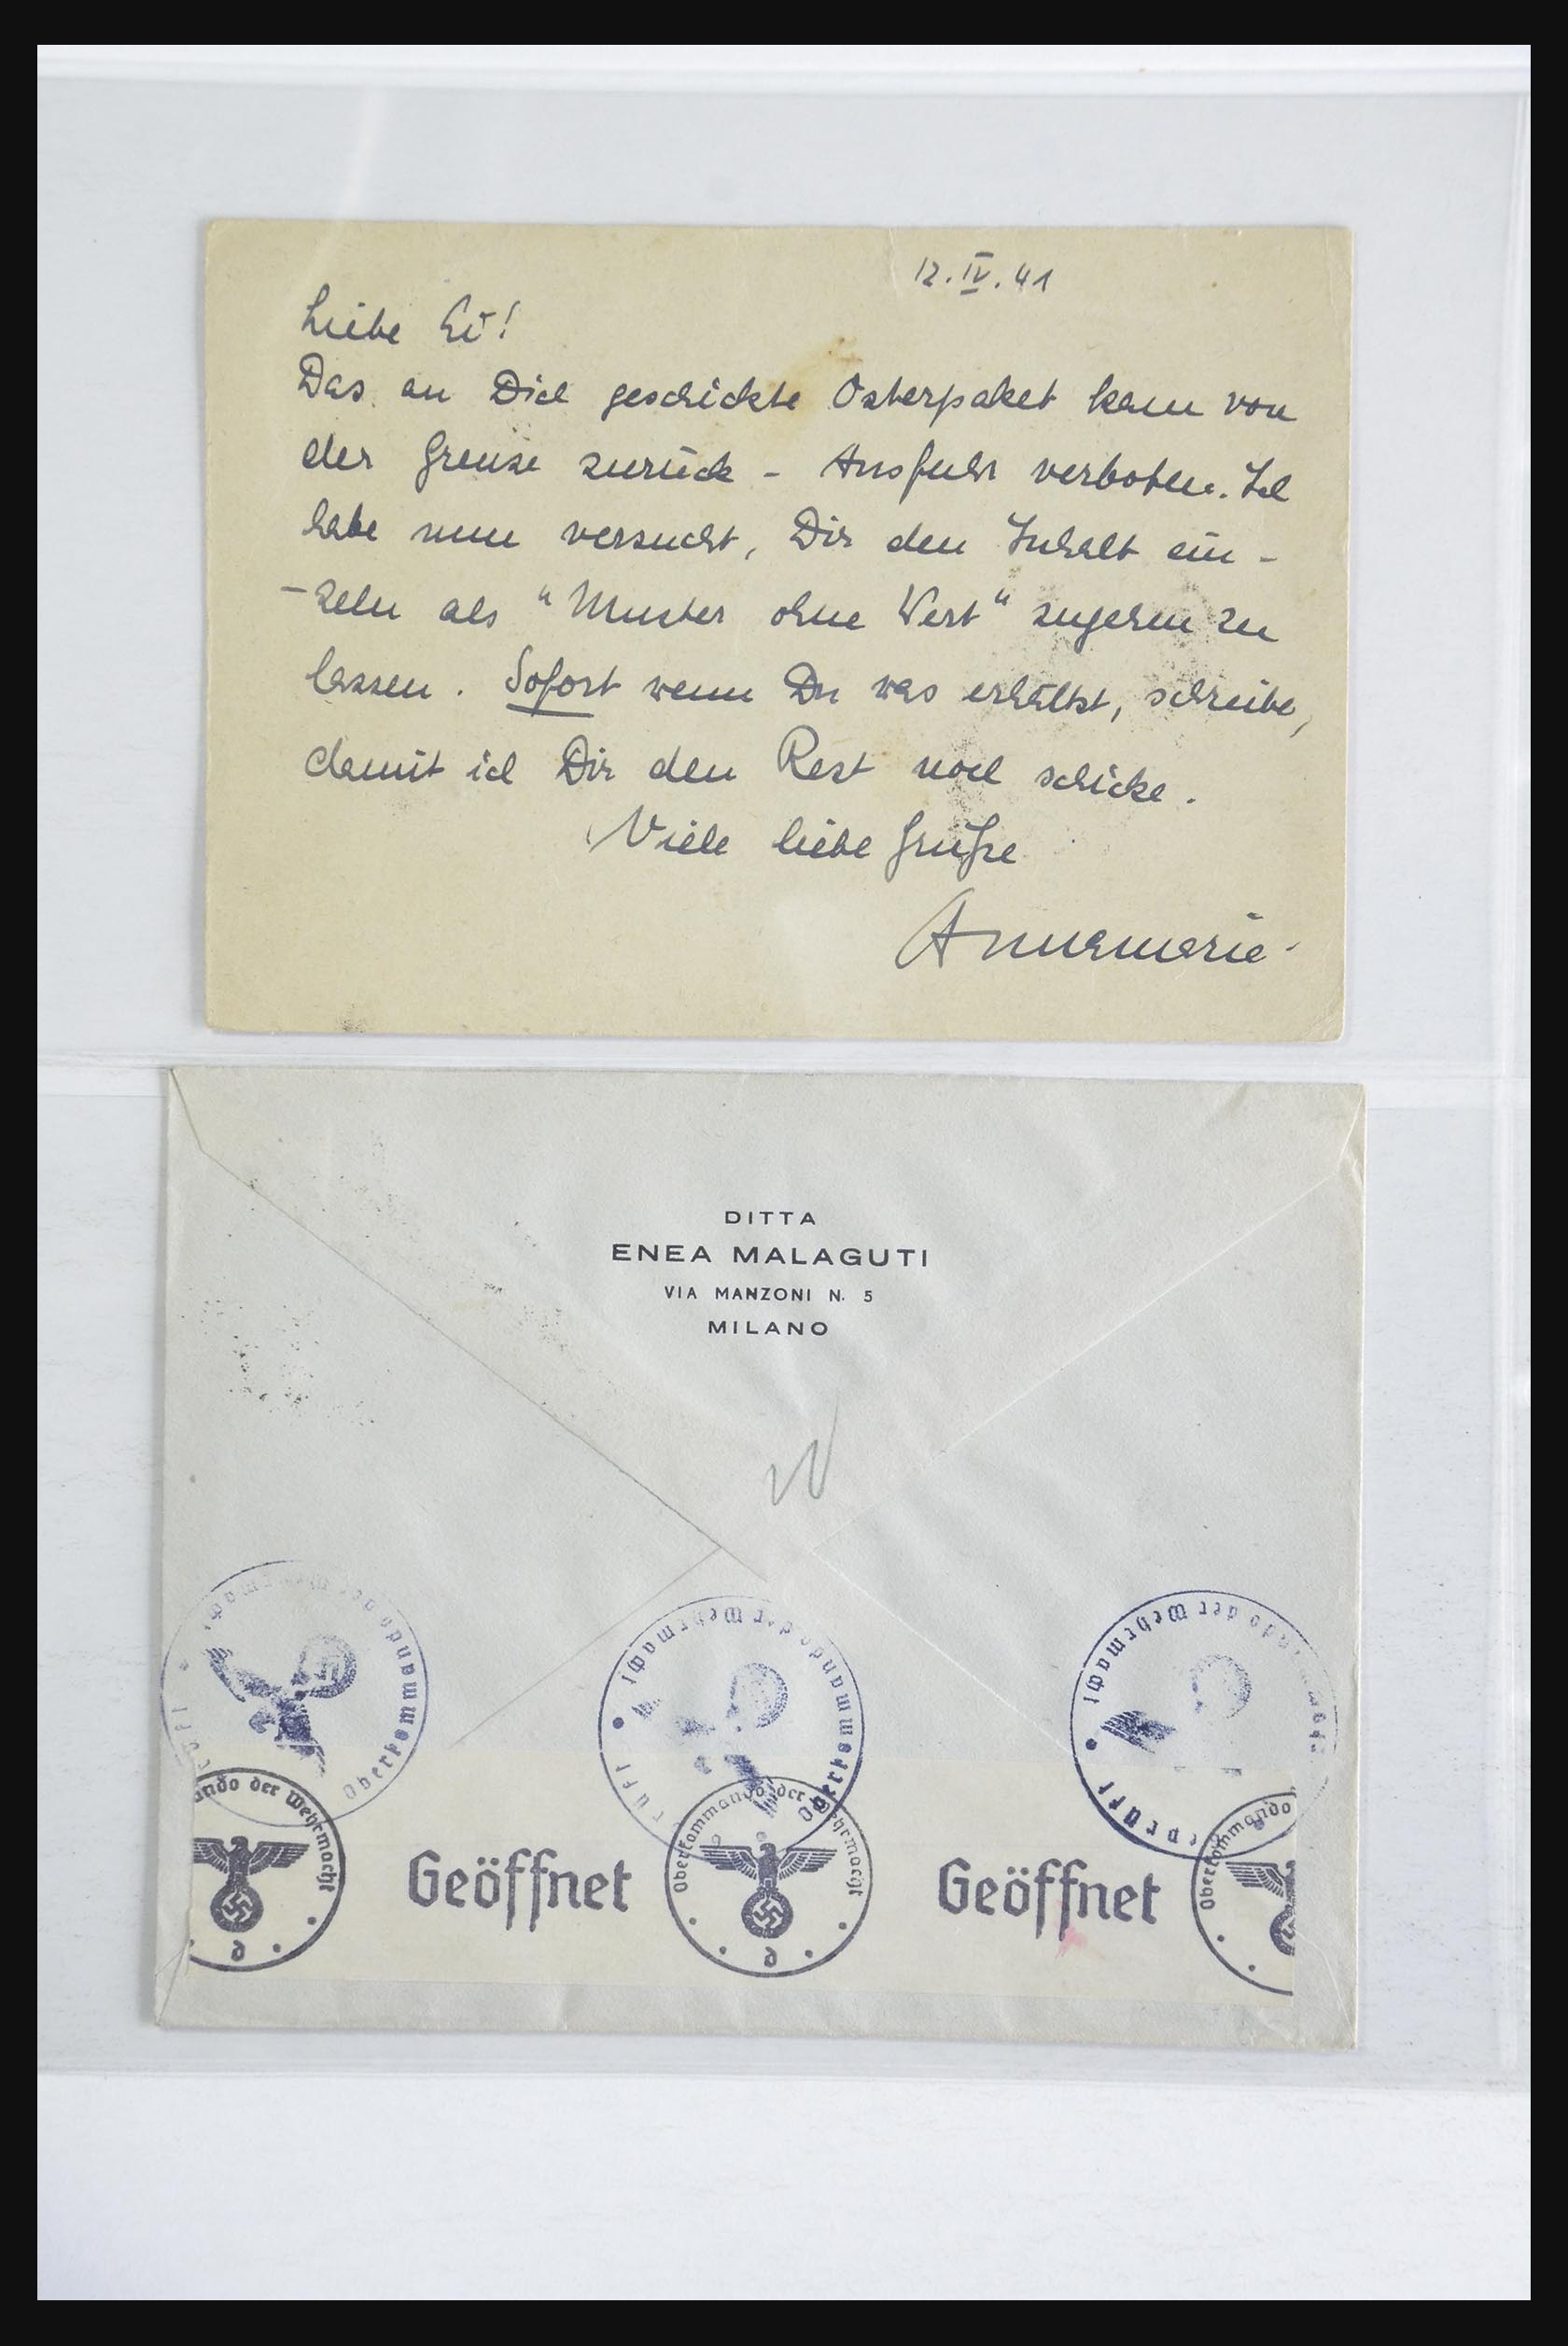 12.IV.41
Liebe Ei!
Das an Dich geschickte Osterpaket kam von
der Grenze zurück - Ausfuhr verboten. Ich
habe nun versucht, Dir den Inhalt ein-
-zeln als "Muster ohne Wert" zugehen zu
lassen. Sofort wenn Du was erhältst, schreibe,
damit ich Dir den Rest noch schicke.
Viele liebe Grüße
Annemarie
DITTA
ENEA MALAGUTI
VIA MANZONI N. 5
MILANO
Oberkommando der Wehrmacht
Oberkommando der Wehrmacht
ndo der Wehrmacht
ando der Wehrmacht
d
Geöffnet
Oberkommando der Wehrmacht
d
Geöffnet
Oberkommando